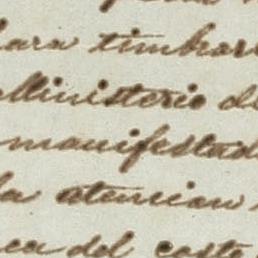 para timbrar
Ministerio de
manifestad
la atencion
ca del coste